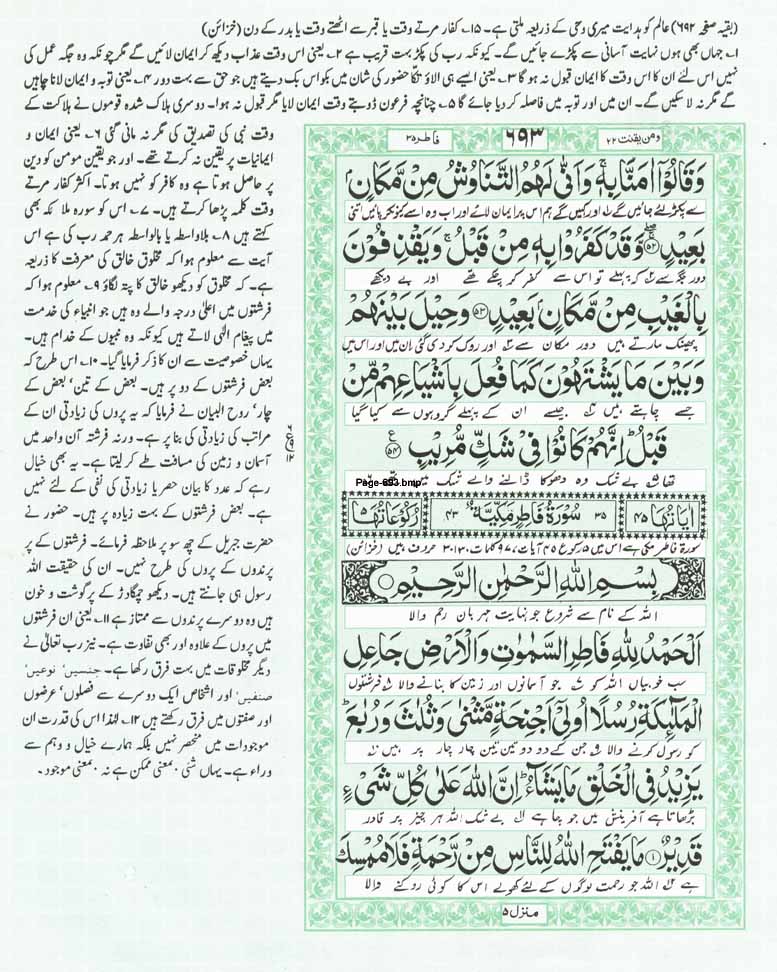 (بقیہ صفحہ ۶۹۲) عالم کو ہدایت میری وحی کے ذریعہ ملتی ہے۔ ۱۵۔ کفار مرتے وقت یا قبر سے اٹھتے وقت یا بدر کے دن (خزائن)
۱۔ جہاں بھی ہوں نہایت آسانی سے پکڑے جائیں گے۔ کیونکہ رب کی پکڑ بہت قریب ہے ۲۔ یعنی اس وقت عذاب دیکھ کر ایمان لائیں گے مگر چونکہ وہ جگہ عمل کی
نہیں اس لئے ان کا اس وقت کا ایمان قبول نہ ہو گا ۳۔ یعنی ایسے ہی الاؤ تکا حضور کی شان میں بکواس بک دیتے ہیں جو حق سے بہت دور ۴۔ یعنی توبہ و ایمان لانا چاہیں
گے مگر نہ لا سکیں گے۔ ان میں اور توبہ میں فاصلہ کر دیا جائے گا ۵۔ چنانچہ فرعون ڈوبتے وقت ایمان لایا مگر قبول نہ ہوا۔ دوسری ہلاک شدہ قوموں نے ہلاکت کے
وقت نبی کی تصدیق کی مگر نہ مانی گئی ۶۔ یعنی ایمان و
ایمانیات پر یقین نہ کرتے تھے۔ اور جو یقین مومن کو دین
پر حاصل ہوتا ہے وہ کافر کو نہیں ہوتا۔ اکثر کفار مرتے
وقت کلمہ پڑھا کرتے ہیں۔ ۷۔ اس کو سورہ ملائکہ بھی
کہتے ہیں ۸۔ بلاواسطہ یا بالواسطہ ہر حمد رب کی ہے اس
آیت سے معلوم ہوا کہ مخلوق خالق کی معرفت کا ذریعہ
ہے۔ کہ مخلوق کو دیکھو خالق کا پتہ لگاؤ ۹۔ معلوم ہوا کہ
فرشتوں میں اعلیٰ درجہ والے وہ ہیں جو انبیاء کی خدمت
میں پیغام الٰہی لاتے ہیں کیونکہ وہ نبیوں کے خدام ہیں۔
یہاں خصوصیت سے ان کا ذکر فرمایا گیا۔ ۱۰۔ اس طرح کہ
بعض فرشتوں کے دو پر ہیں۔ بعض کے تین' بعض کے
چار' روح البیان نے فرمایا کہ یہ پروں کی زیادتی ان کے
مراتب کی زیادتی کی بنا پر ہے۔ ورنہ فرشتہ آن واحد میں
آسمان و زمین کی مسافت طے کر لیتا ہے۔ یہ بھی خیال
رہے کہ عدد کا بیان حصر یا زیادتی کی نفی کے لئے نہیں
ہے۔ بعض فرشتوں کے بہت زیادہ پر ہیں۔ حضور نے
حضرت جبریل کے چھ سو پر ملاحظہ فرمائے۔ فرشتوں کے پر
پرندوں کے پروں کی طرح نہیں۔ ان کی حقیقت اللہ
رسول ہی جانتے ہیں۔ دیکھو چمگادڑ کے پر گوشت و خون
ہیں وہ دوسرے پرندوں سے ممتاز ہے ۱۱۔ یعنی ان فرشتوں
میں پروں کے علاوہ اور بھی تفاوت ہے۔ نیز رب تعالیٰ نے
دیگر مخلوقات میں بہت فرق رکھا ہے۔ جنسیں' نوعیں'
صنفیں' اور اشخاص ایک دوسرے سے فصلوں' عرضوں
اور صفتوں میں فرق رکھتے ہیں ۱۲۔ لہٰذا اس کی قدرت ان
موجودات میں منحصر نہیں بلکہ ہمارے خیال و وہم سے
وراء ہے۔ یہاں شئی ، بمعنی ممکن ہے نہ ، بمعنی موجود۔
ومن یقنت ۲۲
۶۹۳
فاطر ۳۵
وَقَالُوْٓا اٰمَنَّا بِهٖ ۚ وَاَنّٰى لَهُمُ التَّنَاوُشُ مِنْ مَّكَانٍۭ
سے پکڑ لئے جائیں گے اور کہیں گے ہم اس پر ایمان لائے اور اب وہ اسے کیونکر پائیں اتنی
بَعِيْدٍ ۝۵۲ وَّقَدْ كَفَرُوْا بِهٖ مِنْ قَبْلُ ۚ وَيَقْذِفُوْنَ
دور جگہ سے کہ پہلے تو اس سے کفر کر چکے تھے اور بے دیکھے
بِالْغَيْبِ مِنْ مَّكَانٍۭ بَعِيْدٍ ۝۵۳ وَحِيْلَ بَيْنَهُمْ
پھینک مارتے ہیں دور مکان سے اور روک کر دی گئی ان میں اور اس میں
وَبَيْنَ مَا يَشْتَهُوْنَ كَمَا فُعِلَ بِاَشْيَاعِهِمْ مِّنْ
جسے چاہتے ہیں جیسے ان کے پہلے گروہوں سے کیا گیا
قَبْلُ ؕ اِنَّهُمْ كَانُوْا فِيْ شَكٍّ مُّرِيْبٍ ۝۵۴
تھا بے شک وہ دھوکا ڈالنے والے شک میں تھے
Page-693.bmp
اٰيَاتُهَا ۴۵ ۳۵ سُوْرَةُ فَاطِرٍ مَكِّيَّةٌ ۴۳ رُكُوْعَاتُهَا ۵
سورۃ فاطر مکی ہے اس میں ۵ رکوع ۴۵ آیات، ۹۷۰ کلمات، ۳۱۳۰ حروف ہیں (خزائن)
بِسْمِ اللّٰهِ الرَّحْمٰنِ الرَّحِيْمِ
اللہ کے نام سے شروع جو نہایت مہربان رحم والا
اَلْحَمْدُ لِلّٰهِ فَاطِرِ السَّمٰوٰتِ وَالْاَرْضِ جَاعِلِ
سب خوبیاں اللہ کو جو آسمانوں اور زمین کا بنانے والا فرشتوں
الْمَلٰٓئِكَةِ رُسُلًا اُولِيْٓ اَجْنِحَةٍ مَّثْنٰى وَثُلٰثَ وَرُبٰعَ ؕ
کو رسول کرنے والا جن کے دو دو تین تین چار چار پر ہیں
يَزِيْدُ فِي الْخَلْقِ مَا يَشَآءُ ؕ اِنَّ اللّٰهَ عَلٰى كُلِّ شَيْءٍ
بڑھاتا ہے آفرینش میں جو چاہے بے شک اللہ ہر چیز پر قادر
قَدِيْرٌ ۝۱ مَا يَفْتَحِ اللّٰهُ لِلنَّاسِ مِنْ رَّحْمَةٍ فَلَا مُمْسِكَ
ہے اللہ جو رحمت لوگوں کے لئے کھولے اس کا کوئی روکنے والا
منزل ۵